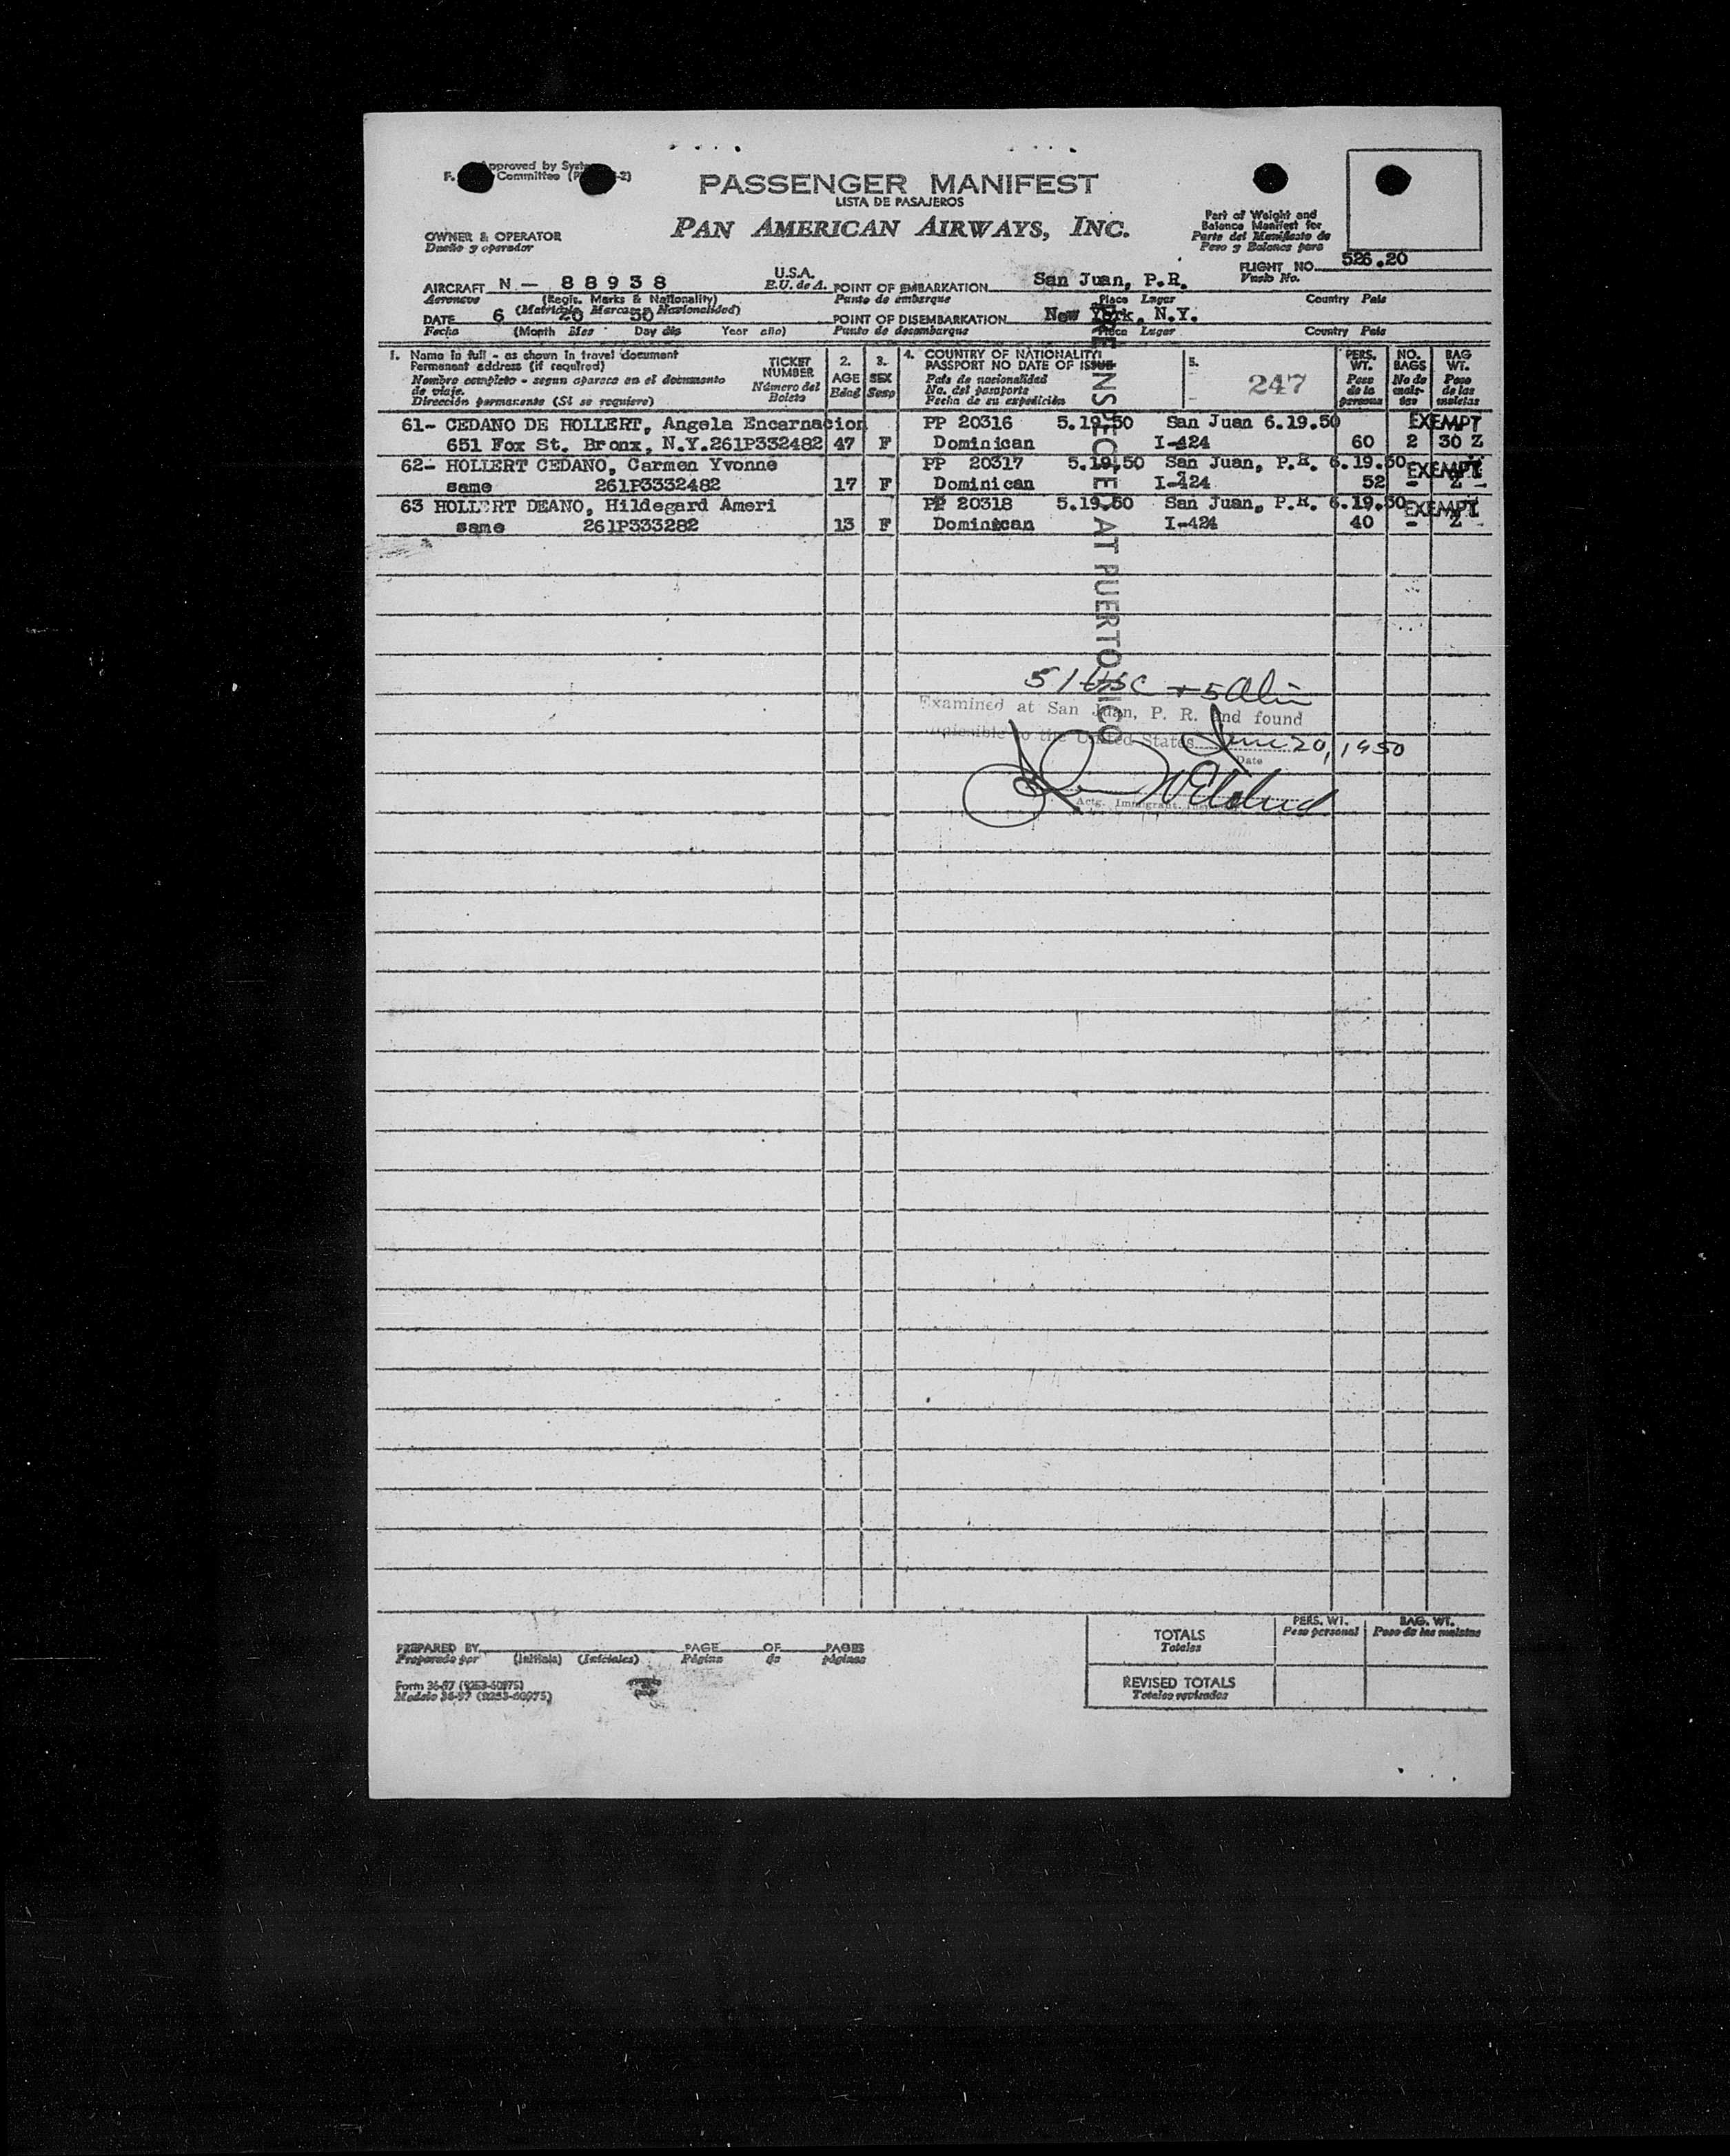 Approved by
Committee
PASSENGER MANIFEST
LISTA DE PASAJEROS
PAN AMERICAN AIRWAYS, INC.
OWNER & OPERATOR
Dueño y operador
Part of Weight and
Balance Manifest for
Parte del Manifiesto de
Peso y Balance para
FLIGHT NO. 526.20
Vuelo No.
AIRCRAFT N - 88938
Aeronave (Regis. Marks & Nationality)
(Matricula Marcas y Nacionalidad)
U.S.A.
E.U. de A.
POINT OF EMBARKATION San Juan, P.R.
Punto de embarque Place Lugar Country Pais
DATE 6 20 50
Fecha (Month Mes Day dia Year año)
POINT OF DISEMBARKATION New York, N.Y.
Punto de desembarque Place Lugar Country Pais
1. Name in full - as shown in travel document
Permanent address (if required)
Nombre completo - segun aparece en el documento
de viaje.
Dirección permanente (Si se requiere)
TICKET
NUMBER
Número del
Boleto
2.
AGE
Edad
3.
SEX
Sexo
4. COUNTRY OF NATIONALITY
PASSPORT NO DATE OF ISSUE
Pais de nacionalidad
No. del pasaporte
Fecha de su expedición
5.
247
PERS.
WT.
Peso
de la
persona
NO.
BAGS
No de
male-
tas
BAG
WT.
Peso
de las
maletas
61- CEDANO DE HOLLERT, Angela Encarnacion PP 20316 5.19.50 San Juan 6.19.50 EXEMPT
651 Fox St. Bronx, N.Y.261P332482 47 F Dominican I-424 60 2 30 Z
62- HOLLERT CEDANO, Carmen Yvonne PP 20317 5.19.50 San Juan, P.R. 6.19.50 EXEMPT
same 261P3332482 17 F Dominican I-424 52 - Z -
63 HOLLERT DEANO, Hildegard Ameri PP 20318 5.19.50 San Juan, P.R. 6.19.50 EXEMPT
same 261P333282 13 F Dominican I-424 40 - Z -
AT PUERTO RICO
51 USC + 5 Alien
Examined at San Juan, P. R. and found
to the United States June 20, 1950
Date
Actg. Immigrant.
PREPARED BY PAGE OF PAGES
Preparado por (Initials) (Iniciales) Página de páginas
Form 36-97 (9253-60975)
Modelo 36-97 (9253-60975)
PERS. WT.
Peso personal
BAG. WT.
Peso de las maletas
TOTALS
Totales
REVISED TOTALS
Totales revisados